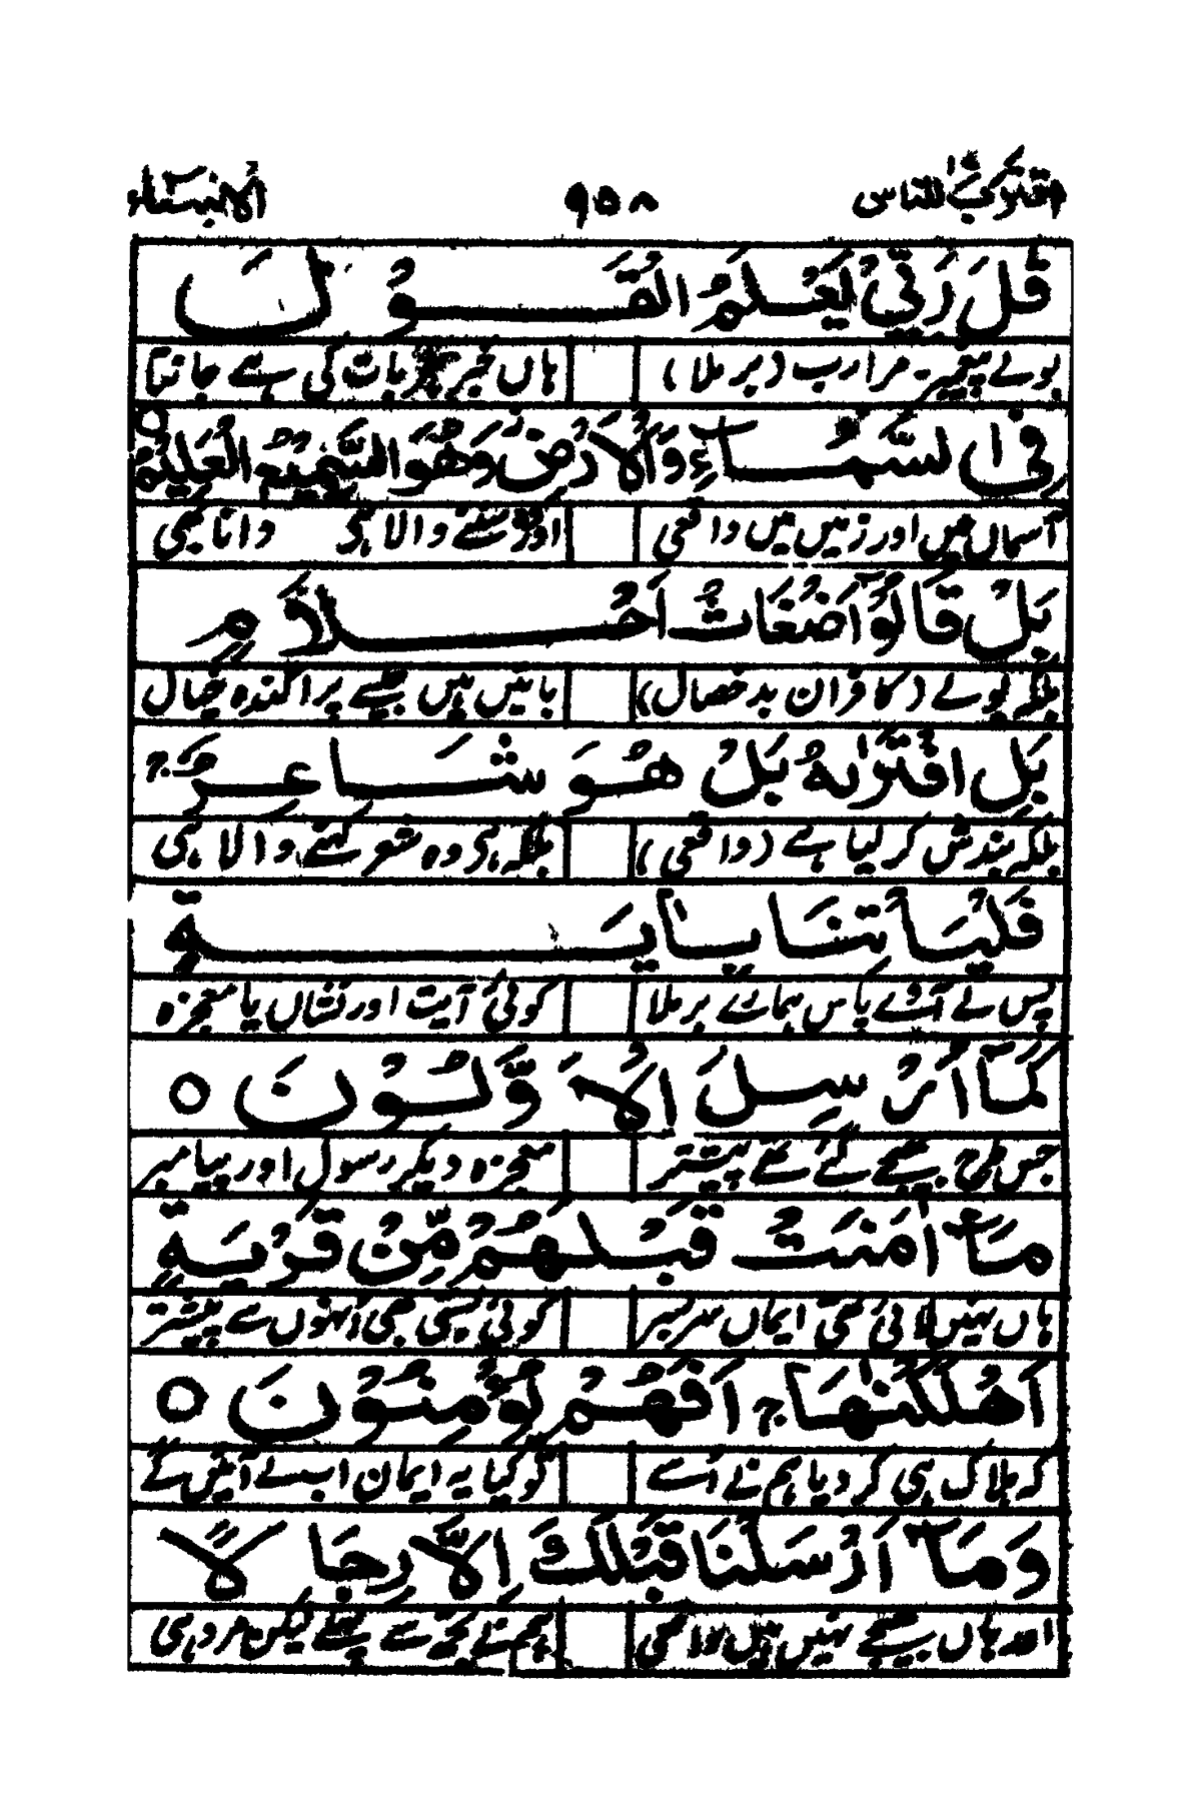 اقترب للناس ۹۵۸ الانبیاء
قٰلَ رَبِّیْ یَعْلَمُ الْقَوْلَ
بولے پیغمبر۔ مرا رب (بر ملا) ہاں خبر ہر بات کی ہے جانتا
فِی السَّمَآءِ وَالْاَرْضِ وَهُوَ السَّمِیْعُ الْعَلِیْمُ ○
آسماں میں اور زمیں میں واقعی اور سننے والا ہے دانا بھی
بَلْ قَالُوْٓا اَضْغَاثُ اَحْلَامٍ
بلکہ بولے (کافران بد خصال) باتیں ہیں جیسے پراگندہ خیال
بَلِ افْتَرٰىهُ بَلْ هُوَ شَاعِرٌ ۚ
بلکہ بندش کر لیا ہے (واقعی) بلکہ ہے وہ شعر کہنے والا ہی
فَلْیَاْتِنَا بِاٰیَةٍ
پس لے آئے پاس ہمارے بر ملا کوئی آیت اور نشاں یا معجزہ
كَمَآ اُرْسِلَ الْاَوَّلُوْنَ ○
جس طرح بھیجے گئے تھے پیشتر معجزہ دیکر رسول اور پیامبر
مَآ اٰمَنَتْ قَبْلَهُمْ مِّنْ قَرْیَةٍ
ہاں نہیں لائی تھی ایماں سر بسر کوئی بستی بھی اُنہوں سے پیشتر
اَهْلَكْنٰهَا ۚ اَفَهُمْ یُؤْمِنُوْنَ ○
کہ ہلاک ہی کر دیا ہم نے اُسے تو کیا یہ ایمان اب لے آئیں گے
وَمَآ اَرْسَلْنَا قَبْلَكَ اِلَّا رِجَالًا
اور ہاں بھیجے نہیں ہیں واقعی ہم نے تجھ سے پہلے لیکن مرد ہی